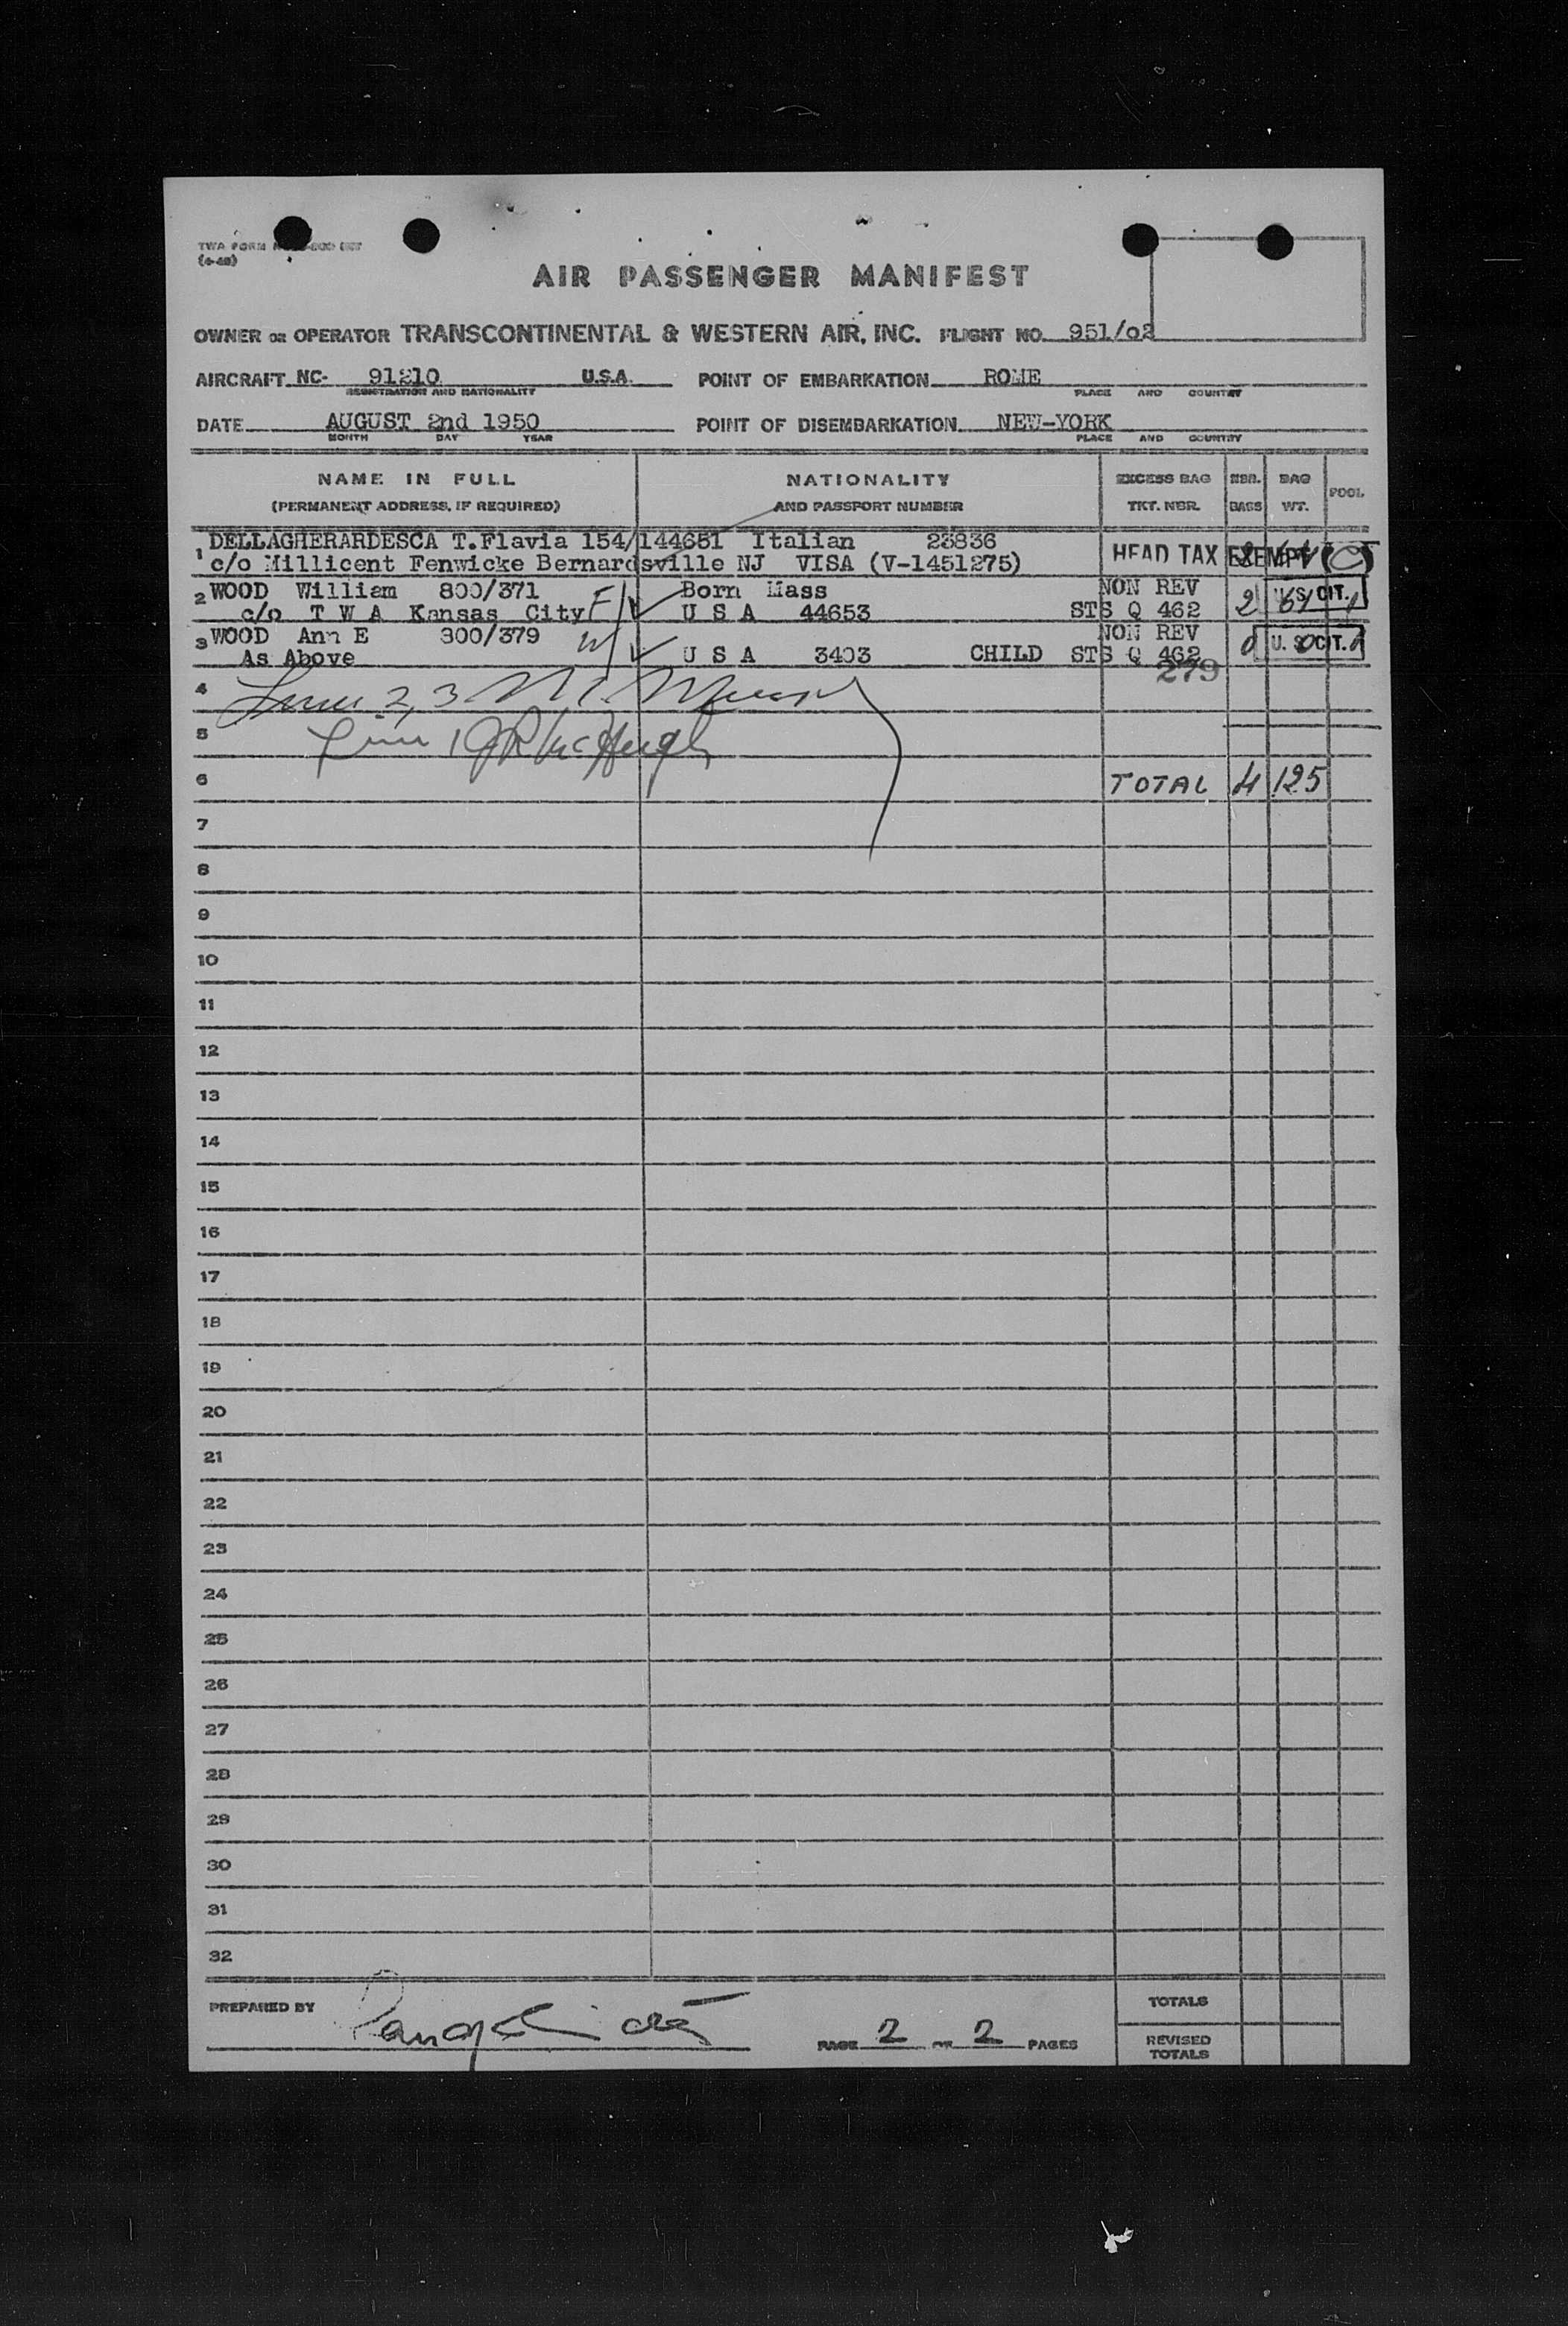 TWA FORM
(4-48)
AIR PASSENGER MANIFEST
OWNER OR OPERATOR TRANSCONTINENTAL & WESTERN AIR, INC. FLIGHT NO. 951/02
AIRCRAFT NC- 91210 U.S.A. POINT OF EMBARKATION ROME
REGISTRATION AND NATIONALITY PLACE AND COUNTRY
DATE AUGUST 2nd 1950 POINT OF DISEMBARKATION NEW-YORK
MONTH DAY YEAR PLACE AND COUNTRY
NAME IN FULL NATIONALITY EXCESS BAG NBR. BAG POOL
(PERMANENT ADDRESS, IF REQUIRED) AND PASSPORT NUMBER TKT. NBR. BAGS WT.
1 DELLAGHERARDESCA T.Flavia 154/144651 Italian 23836
c/o Millicent Fenwicke Bernardsville NJ VISA (V-1451275) HEAD TAX EXEMPT (C)
2 WOOD William 800/371 Born Mass NON REV
c/o T W A Kansas City F U S A 44653 STS Q 462 2 61 U.S. CIT. 1
3 WOOD Ann E 300/379 NON REV
As Above W U S A 3403 CHILD STS Q 462 0 U. S. CIT.
279
4 2, 3
5 1 McHugh
6 TOTAL 4 125
7
8
9
10
11
12
13
14
15
16
17
18
19
20
21
22
23
24
25
26
27
28
29
30
31
32
PREPARED BY TOTALS
PAGE 2 OF 2 PAGES REVISED
TOTALS